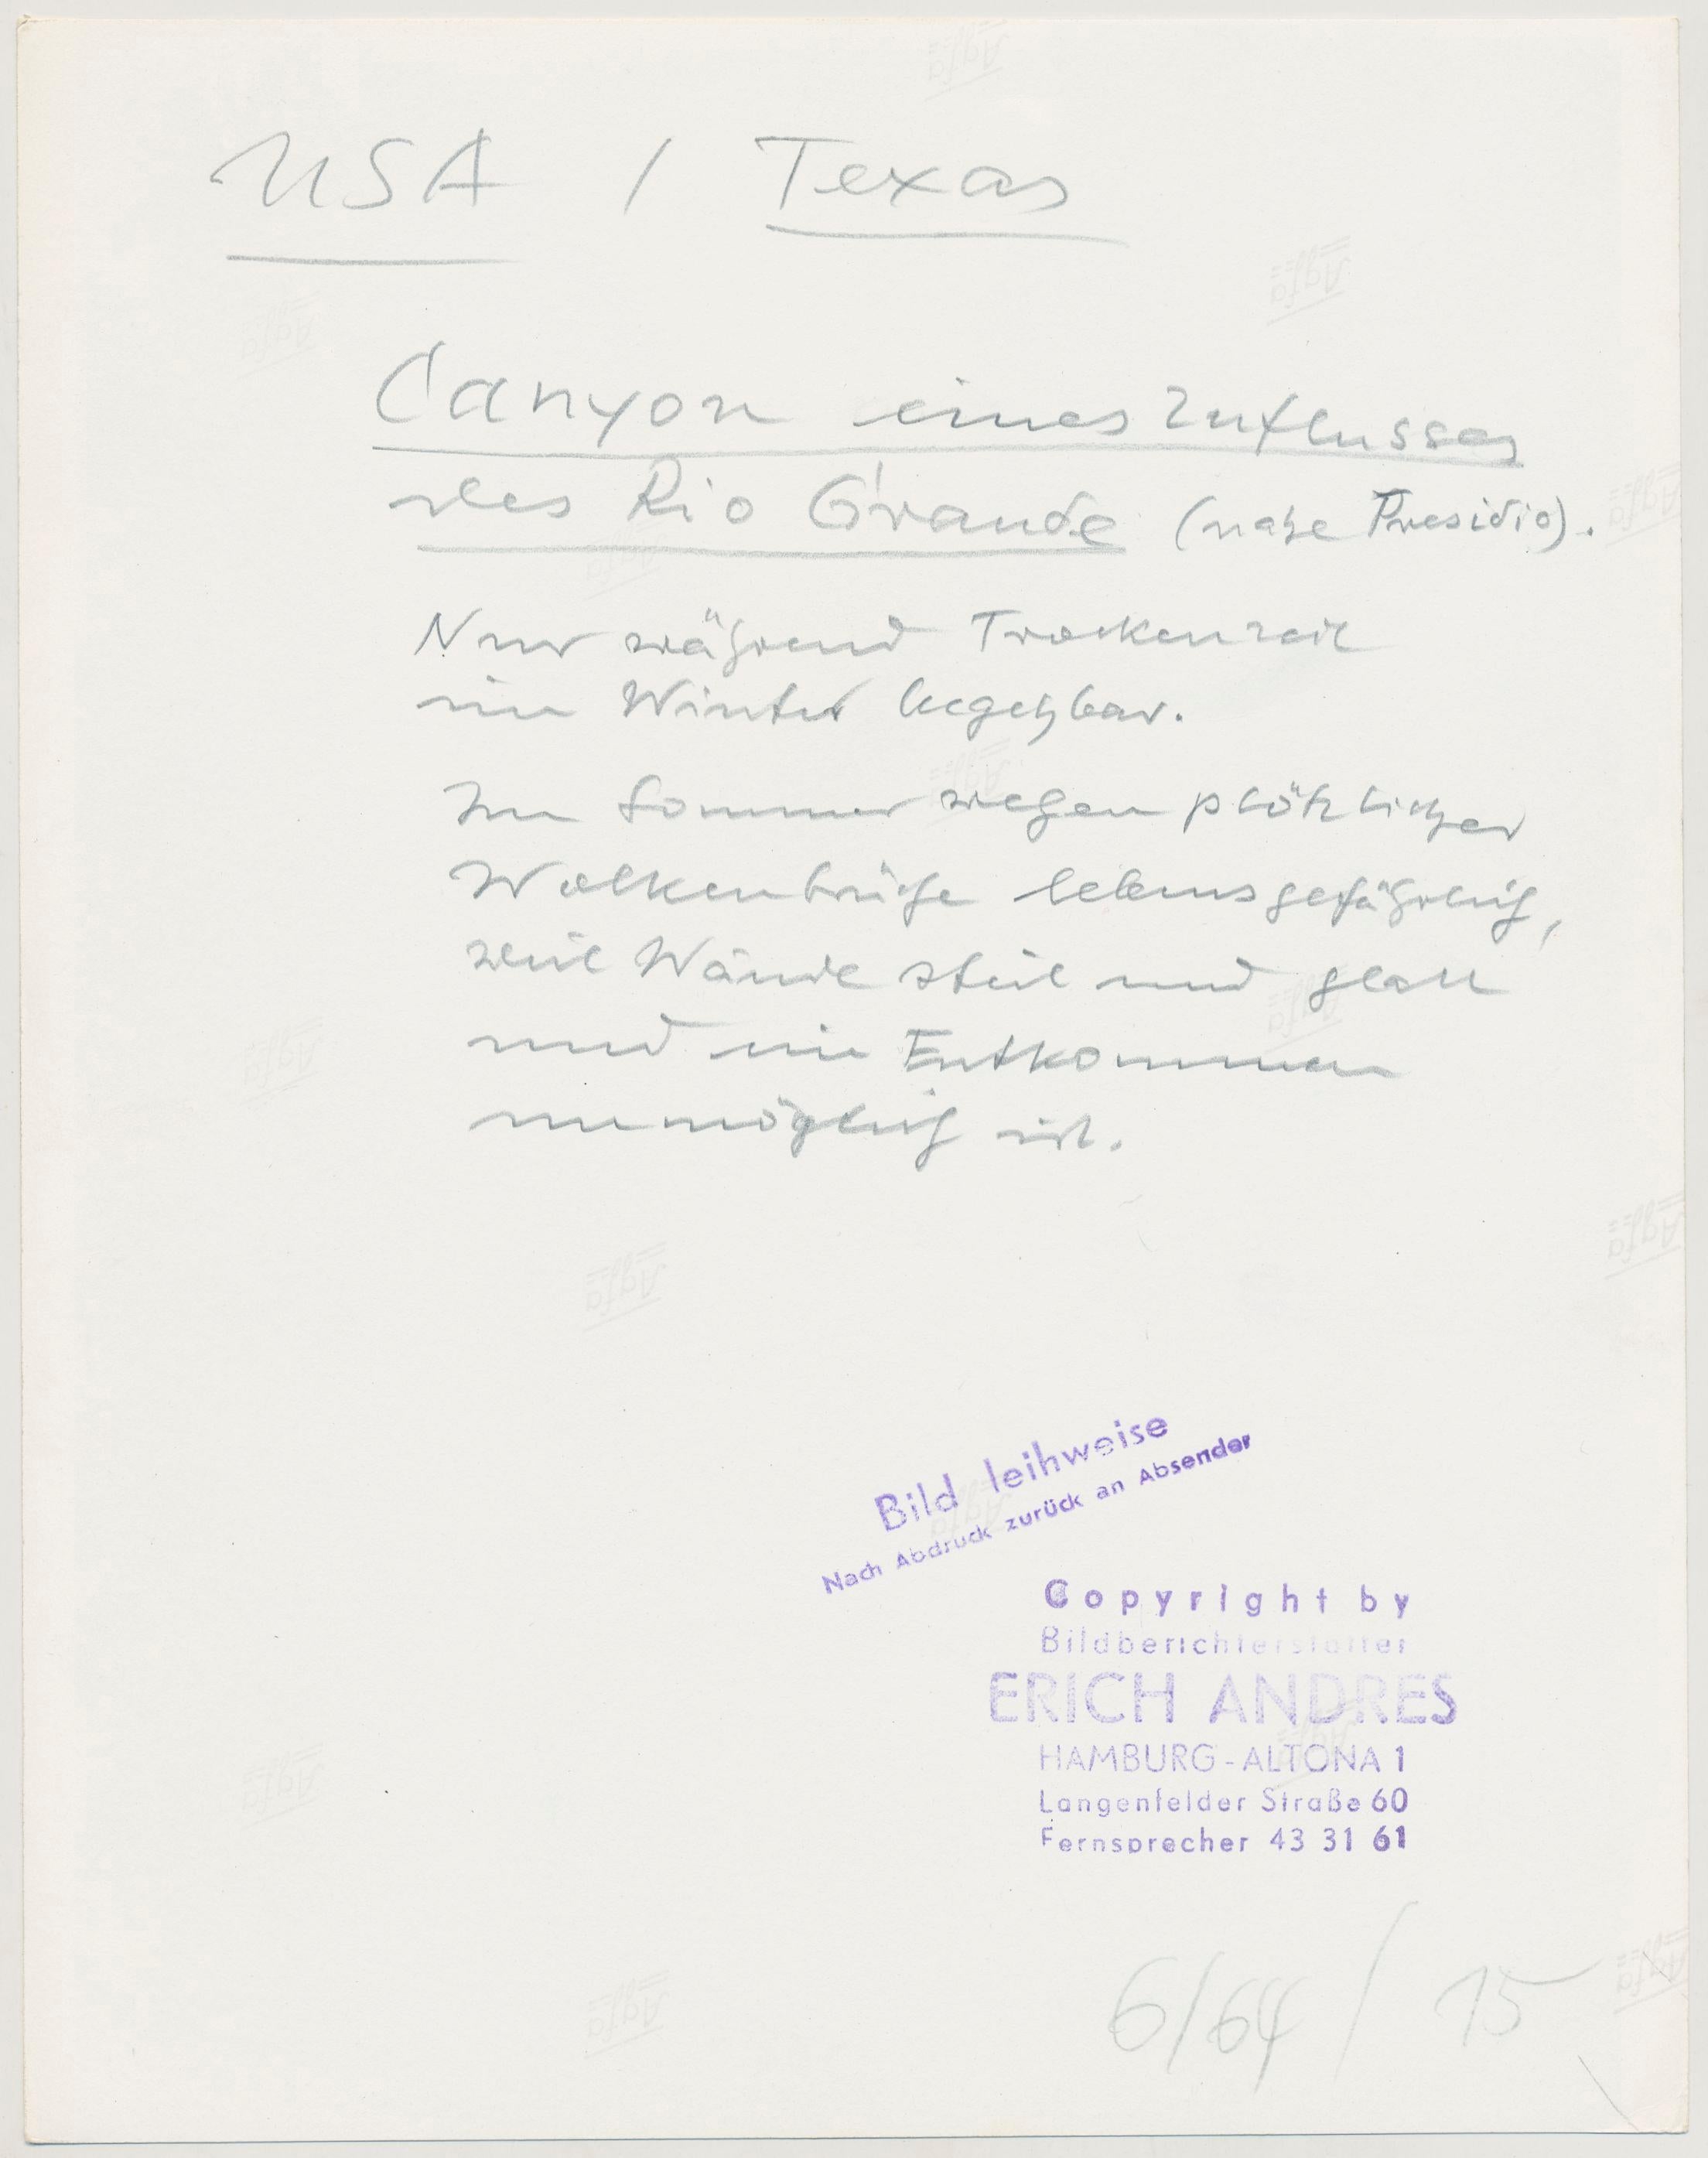 USA / Texas
Canyon eines Zuflusses
des Rio Grande (nahe Presidio).
Nur während Trockenzeit
im Winter begehbar.
Im Sommer wegen plötzlicher
Wolkenbrüche lebensgefährlich,
weil Wände steil und glatt
und ein Entkommen
unmöglich ist.
Bild leihweise
Nach Abdruck zurück an Absender
Copyright by
Bildberichterstatter
ERICH ANDRES
HAMBURG-ALTONA 1
Langenfelder Straße 60
Fernsprecher 43 31 61
6/64 / 15
Agfa